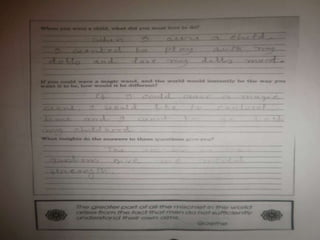 When you were a child, what did you most love to do?
When I were a child.
I wanted to play with my
dolls and love my dolls most.
If you could wave a magic wand, and the world would instantly be the way
you want it to be, how would it be different?
If I could wave a magic
wand I would like to
time and I want to go back
my childhood
What insights do the answers to these questions give you?
The
questions give me
strength
The greater part of all the mischief in this world
arises from the fact that men do not sufficiently
understand their own aims.
Goethe